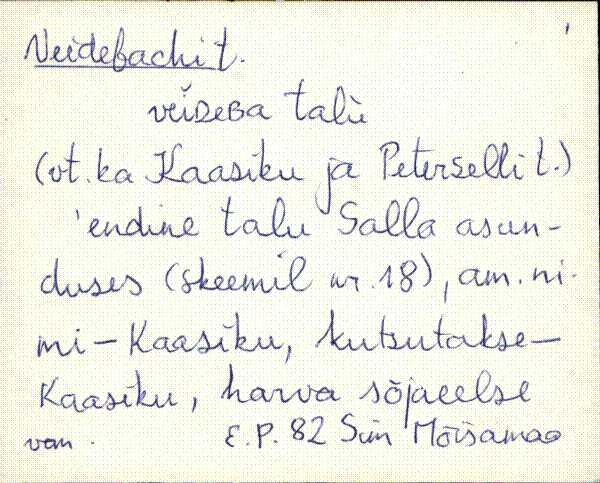 Veidebachi t.
vĕiDEBA talù
(vt. ka Kaasiku ja Peterselli t.)
'endine talu Salla asun-
duses (skeemil nr. 18), am. ni-
mi – Kaasiku, kutsutakse –
Kaasiku, harva sõjaeelse
van. E.P. 82 Siin Mõisamaa